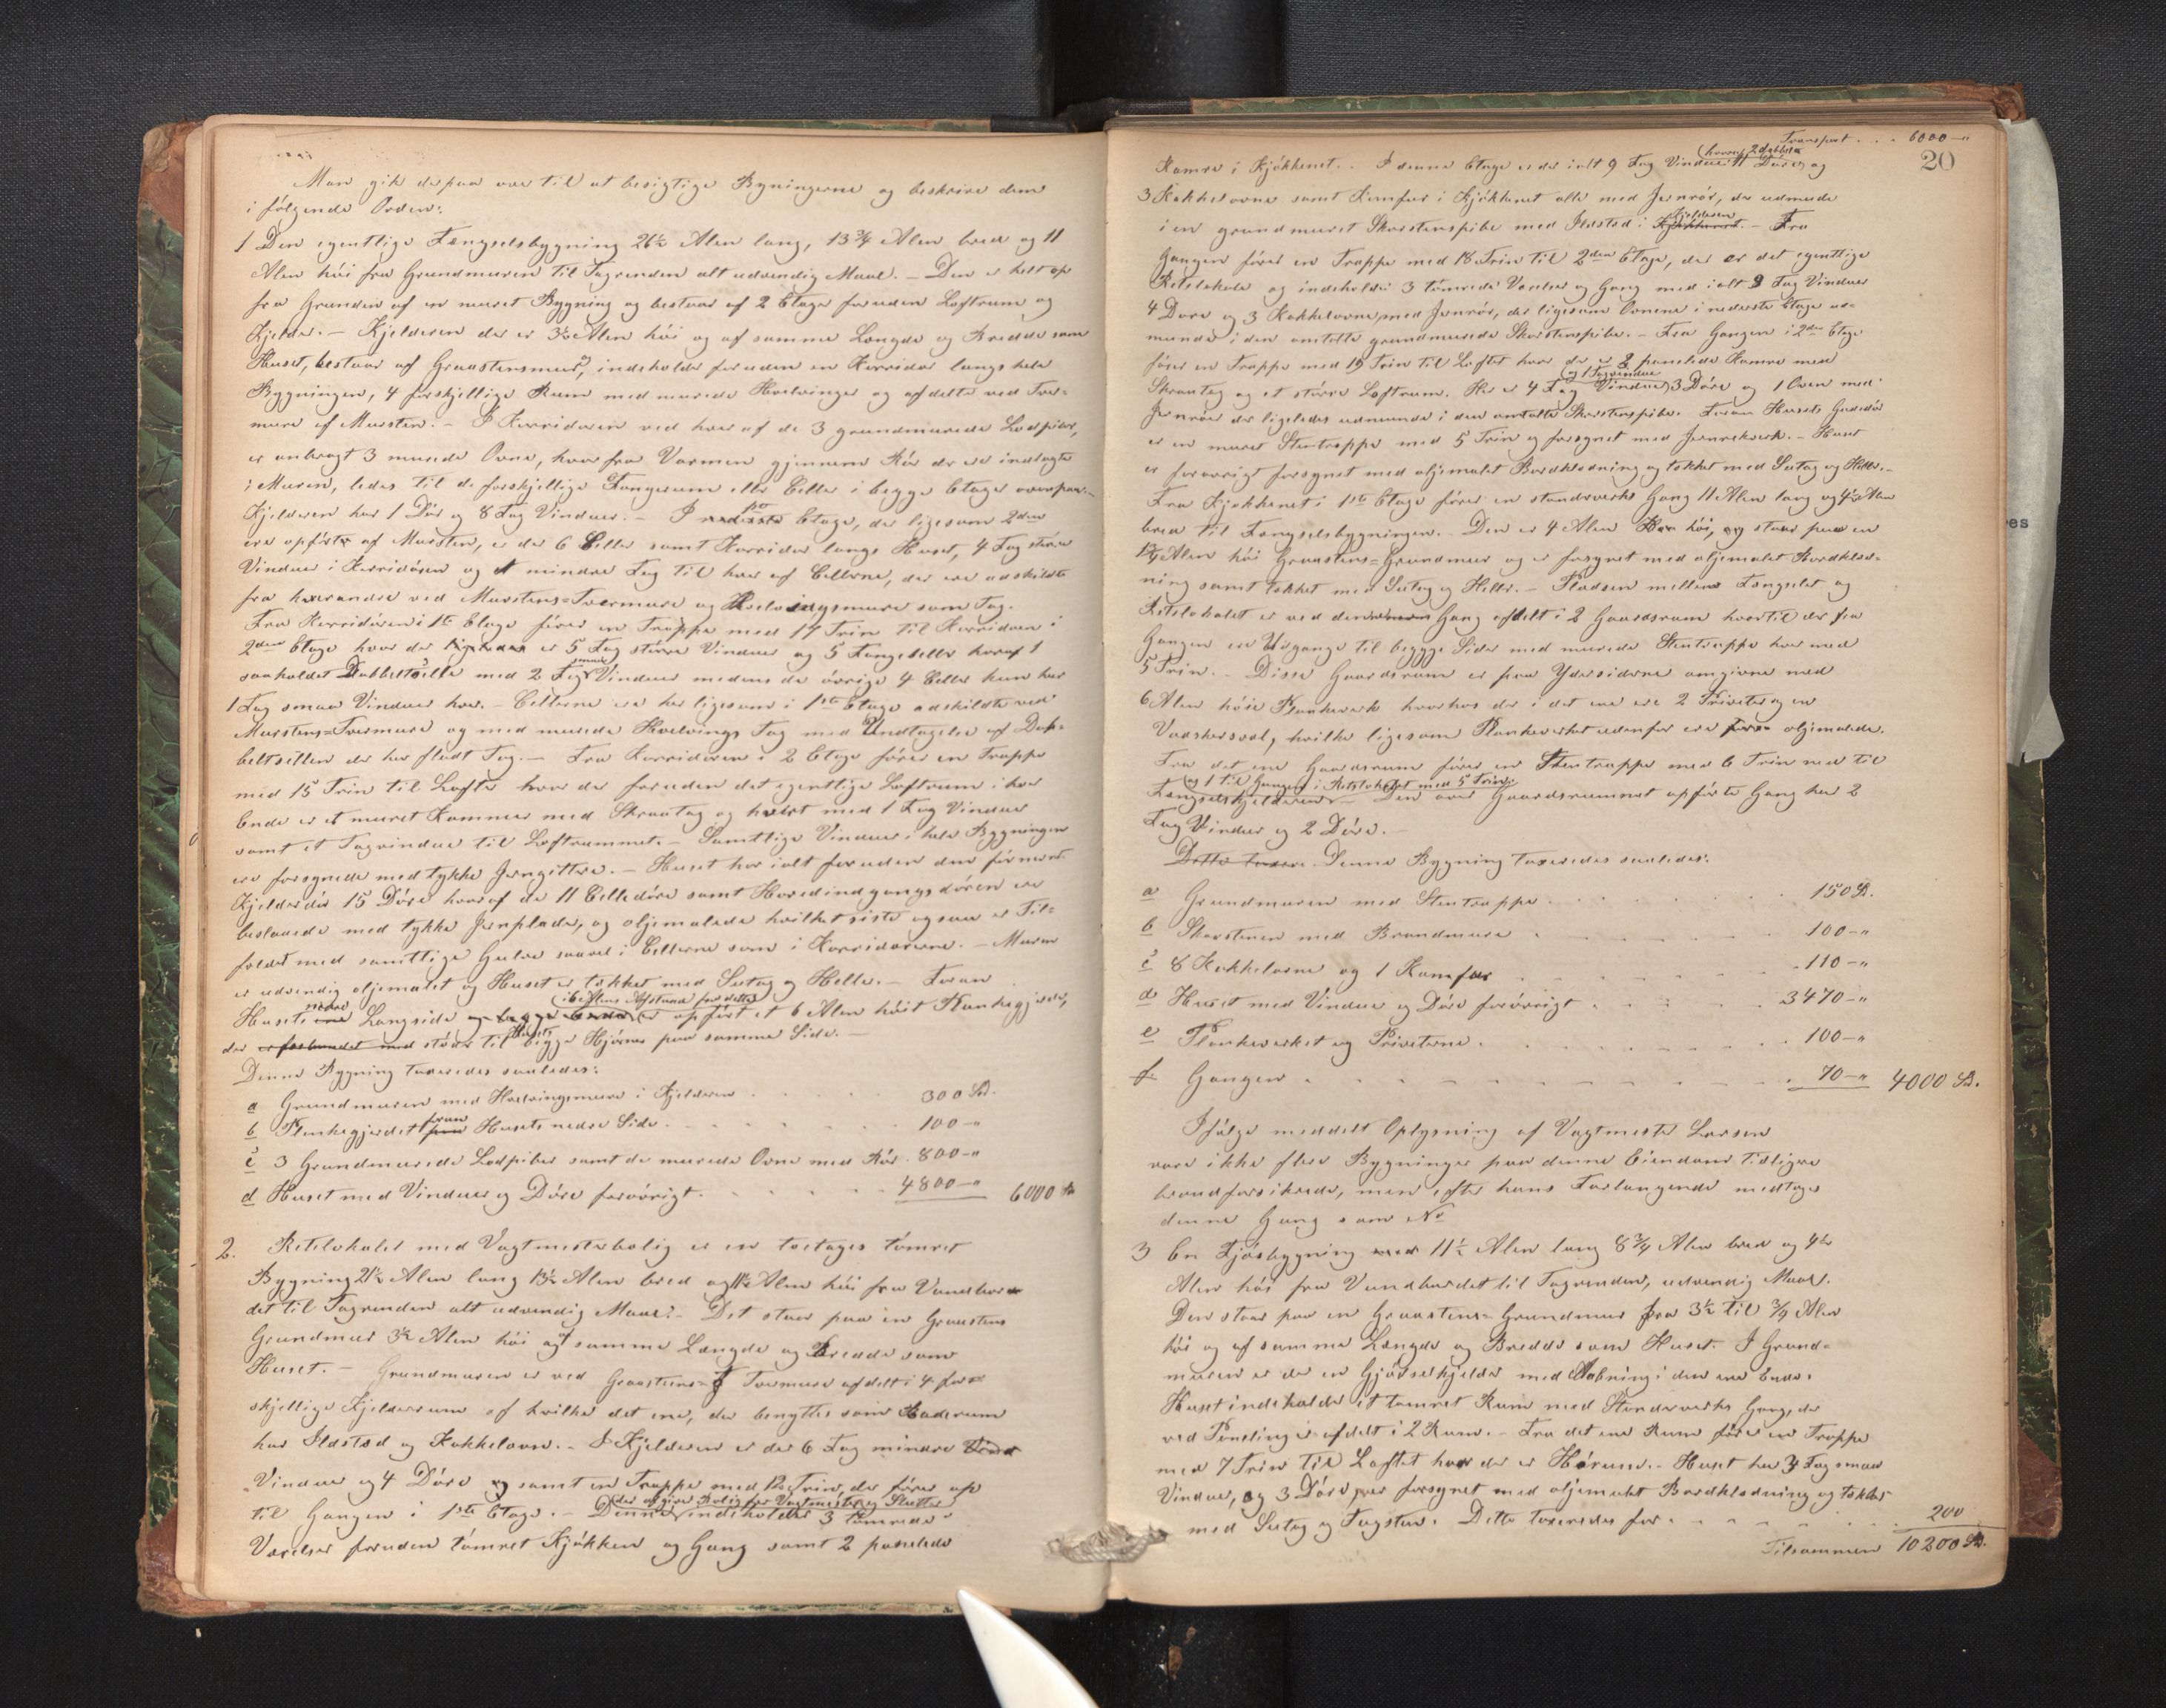 Man gik derpaa over til at besigtige Bygningerne og beskrive dem
i følgende Orden:
1 Den egentlige Fængselsbygning 26½ Alen lang, 13¾ Alen bred og 11
Alen høi fra Grundmuren til Tagrenden alt udvendig Maal. – Den er helt op
fra Grunden af en muret Bygning og bestaar af 2 Etager foruden Loftrum og
Kjelder. – Kjelderen der er 3½ Alen høi og af samme Længde og Bredde som
Huset, bestaar af Graastensmur, indeholder foruden en Korridor langs hele
Bygningen, 4 forskjellige Rum med murede Hvelvinger og afdelte ved Tver-
mure af Mursten. – I Korridoren ved hver af de 3 grundmurede Lodpiber,
er anbragt 3 murede Ovne, hvorfra Varmen gjennem Rør der ere indlagte
i Muren, ledes til de forskjellige Fangerum eller Celler i begge Etager ovenpaa. –
Kjelderen har 1 Dør og 8 Fag Vinduer. – I nederste 1ste Etage, der ligesom 2den
ere opførte af Mursten, er der 6 Celler samt Korridor langs Huset, 4 Fag større
Vinduer i Korridoren og 1 mindre Fag til hver af Cellerne, der ere adskildte
fra hverandre ved Murstens=Tvermure og Hvelvingsmure som Tag.
Fra Korridoren i 1ste Etage fører en Trappe med 17 Trin til Korridoren i
2den Etage hvor der ligeledes er 5 Fag større Vinduer og 5 Fangeceller hvoraf 1
saakaldet Dobbeltcelle med 2 Fag smaa Vinduer medens de øvrige 4 Celler kun har
1 Fag smaa Vinduer hver. – Cellerne ere her ligesom i 1ste Etage adskildte ved
Murstens=Tvermure og med murede Hvelvings Tag med Undtagelse af Dob-
beltcellen der har fladt Tag. – Fra Korridoren i 2 Etage fører en Trappe
med 15 Trin til Loftet hvor der foruden det egentlige Loftrum i hver
Ende er et muret Kammer med Skraatag og hvert med 1 Fag Vinduer
samt et Tagvindue til Loftrummet. – Samtlige Vinduer i hele Bygningen
ere forsynede med tykke Jerngittere. – Huset har ialt foruden den før nævnte
Kjelderdør 15 Døre hvoraf de 11 Celledøre samt Hovedindgangsdøren ere
beslaaede med tykke Jernplader, og oljemalede hvilket sidste ogsaa er Til-
fældet med samtlige Gulve saavel i Cellerne som i Korridorerne. – Muren
er udvendig oljemalet og Huset er tækket med Sutag og Heller. – Foran
Husets nedre Langside og begge Ender (i 6 Alens Afstand fra dette) er opført et 6 Alen høit Plankegjerde,
der er forbundet med støder til Husets begge Hjørner paa samme Side. –
Denne Bygning taxeredes saaledes:
a Grundmuren med Hvelvingsmure i Kjelderen . . . . 300 Sp.
b Plankegjerdet paa foran Husets nedre Side. . . . . 100 – "
c 3 Grundmurede Lodpiber samt de murede Ovne med Rør . 800 – "
d Huset med Vinduer og Døre forøvrigt . . . . 4800 – " 6000 Sp
2. Retslokalet med Vagtmesterbolig er en toetages tømret
Bygning 21½ Alen lang 13½ Alen bred og 11½ Alen høi fra Vandbor
det til Tagrenden alt udvendig Maal. – Det staar paa en Graastens
Grundmur 3½ Alen høi og af samme Længde og Bredde som
Huset. – Grundmuren er ved Graastens= Tvermure afdelt i 4 for-
skjellige Kjelderrum af hvilke det ene, der benyttes som Baderum
har Ildsted og Kakkelovn. – I Kjelderen er der 6 Fag mindre Vind
Vinduer og 4 Døre og samt en Trappe med 12 Trin, der fører op
til Gangen i 1ste Etage. – Denne (der afgiver Bolig for Vagtmester og Slutter) indeholder 3 tømrede
Værelser foruden tømret Kjøkken og Gang samt 2 panelede
Transport . . . 6000 – "
20
Kamre i Kjøkkenet. – I denne Etage er der ialt 9 Fag Vinduer (hvoraf 2 dobbelte) 11 Døre og
3 Kakkelovne samt Komfur i Kjøkkenet alle med Jernrør, der udmunde
i en grundmuret Skorstenspibe med Ildsted i Kjøkkenet Kjelderen. – Fra
Gangen fører en Trappe med 18 Trin til 2den Etage, der er det egentlige
Retslokale og indeholder 3 tømrede Værelser og Gang med ialt 9 Fag Vinduer
4 Døre og 3 Kakkelovne med Jernrør, der ligesom Ovnene i nederste Etage ud-
munde i den omtalte grundmurede Skorstenspibe. – Fra Gangen i 2den Etage
fører en Trappe med 19 Trin til Loftet hvor der er 2 panelede Kamre med
Skraatag og et større Loftrum. Her er 4 Fag Vinduer (og 1 Tagvindue) 3 Døre og 1 Oven med
Jernrør der ligeledes udmunde i den omtalte Skorstenspibe. Foran Husets Gadedør
er en muret Stentrappe med 5 Trin og forsynet med Jernrekverk. – Huset
er forøvrigt forsynet med oljemalet Bordklædning og tækket med Sutag og Heller. –
Fra Kjøkkenet i 1ste Etage fører en standverks Gang 11 Alen lang og 4½ Alen
bred til Fængselsbygningen. – Den er 4 Alen høi, og staar paa en
1¼ Alen høi Graastens=Grundmur og er forsynet med oljemalet Bordklæd-
ning samt tækket med Sutag og Heller. – Pladsen mellem Fængslet og
Retslokalet er ved denne Gang afdelt i 2 Gaardsrum hvortil der fra
Gangen er Udgange til begge Sider med murede Stentrapper hver med
5 Trin. – Disse Gaardsrum er paa Ydersiderne omgivne med
6 Alen høie Plankeverk hvorhos der i det ene ere 2 Priveter og en
Vaskersval, hvilke ligesom Plankeverket udenfor ere oljemalede.
Fra det ene Gaardsrum fører en Stentrappe med 6 Trin ned til
Fængselskjelderen (og 1 til Gangen i Retslokalet med 5 Trin). – Den over Gaardsrummet opførte Gang har 2
Fag Vinduer og 2 Døre. –
Dette taxere. Denne Bygning taxeredes saaledes:
a Grundmuren med Stentrappe . . . . . 150 Sp.
b Skorstenen med Brandmure . . . . 100 – "
c 8 Kakkelovne og 1 Komfur . . . . 110 – "
d Huset med Vinduer og Døre forøvrigt . . . . 3470 – "
e Plankeverket og Priveterne . . . . 100 – "
f Gangen . . . . . 70 – " 4000 Sp.
Ifølge meddelt Oplysning af Vagtmester Larsen
vare ikke flere Bygninger paa denne Eiendom tidligere
brandforsikrede, men efter hans Forlangende medtages
denne Gang som No
3 En Fjøsbygning 11½ Alen lang 8¾ Alen bred og 4½
Alen høi fra Vandbordet til Tagrenden, udvendig Maal.
Den staar paa en Graastens=Grundmur fra 3½ til ¾ Alen
høi og af samme Længde og Bredde som Huset. I Grund-
muren er der en Gjødselkjelder med Aabning i den ene Ende.
Huset indeholder et tømret Rum med Standverks Gang, der
ved Paneling er afdelt i 2 Rum. – Fra det ene Rum fører en Trappe
med 7 Trin til Loftet hvor der er Hørum. – Huset har 3 Fag smaa
Vinduer, og 3 Døre, er forsynet med oljemalet Bordklædning og tækket
med Sutag og Tagsten. Dette taxeredes for . . . . . 200
Tilsammen 10200 Sp.